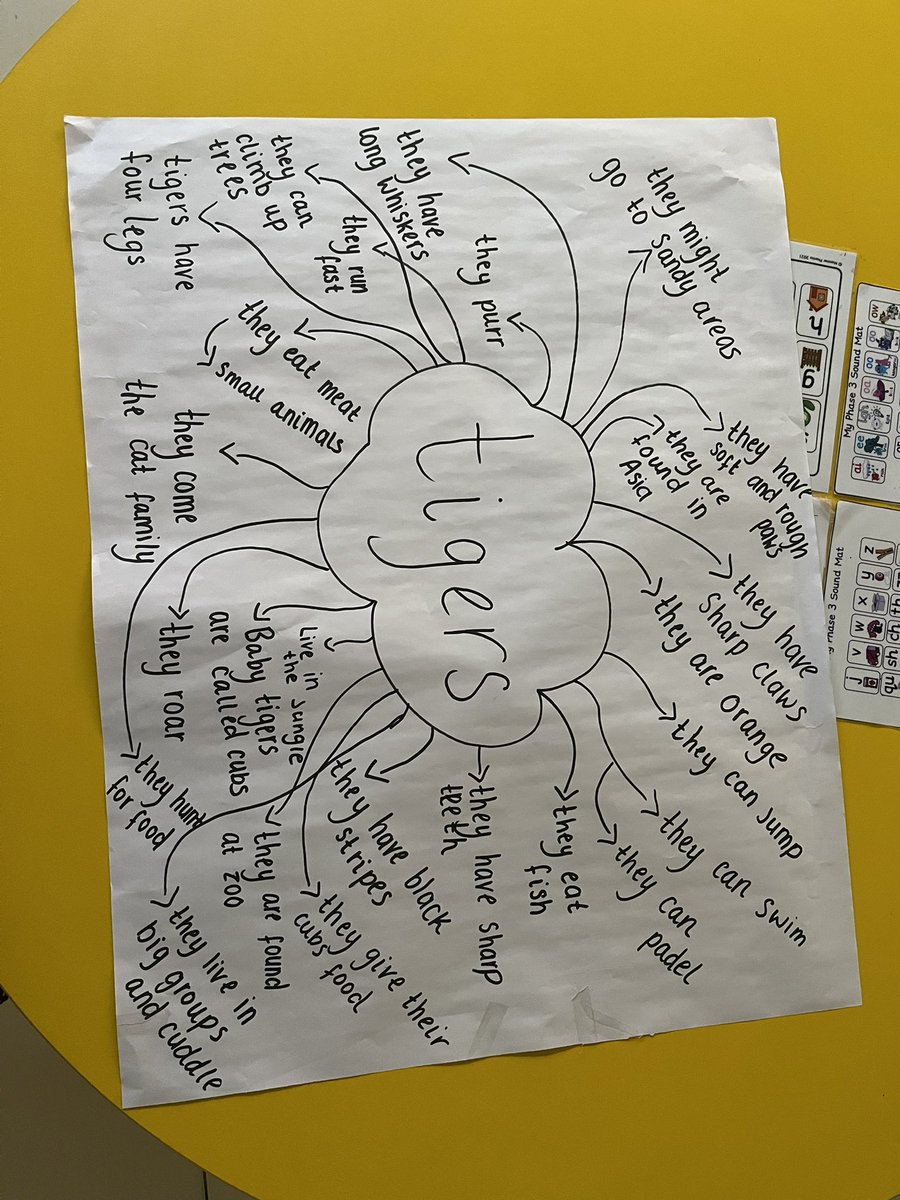 tigers
they might
go to sandy areas
they have
soft and rough
paws
they are
found in
Asia
they have
sharp claws
they are orange
they can jump
they can swim
they can
padel
they eat
fish
they have sharp
teeth
they have black
they stripes
they give their
cubs food
they are found
at zoo
they live in
big groups
and cuddle
they hunt
for food
Live in
the Jungle
Baby tigers
are called cubs
they roar
they come
the cat family
they eat meat
small animals
tigers have
four legs
they run
fast
they can
climb up
trees
they have
long whiskers
they purr
My Phase 3 Sound Mat
ow
oo
oo
oa
ee
ai
My Phase 3 Sound Mat
j
v
w
x
y
z
qu
sh
ch
th